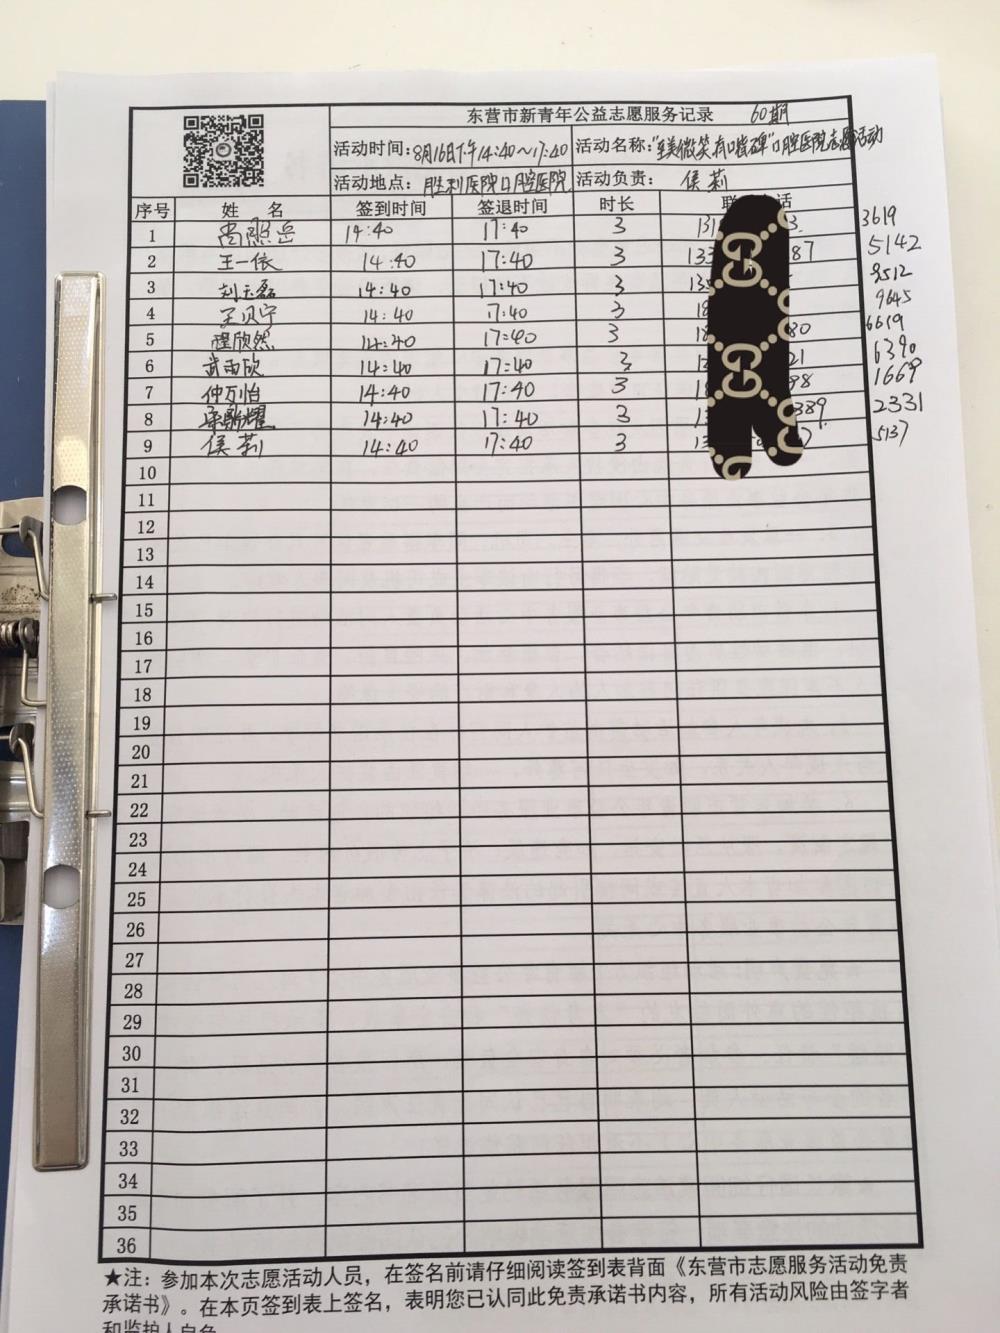 东营市新青年公益志愿服务记录 60期
活动时间:8月16日下午14:40~17:40 活动名称:"美微笑,有口皆碑"口腔医院志愿活动
活动地点: 胜利医院口腔医院 活动负责: 侯莉
序号 姓 名 签到时间 签退时间 时长 联 话
1 14:40 17:40 3 131 3. 3619
2 王一依 14:40 17:40 3 133 87 5142
3 刘玉磊 14:40 17:40 3 135 9512
4 王贝宁 14:40 17:40 3 18 9645
5 程欣然 14:40 17:40 3 18 80 6619
6 武雨欣 14:40 17:40 3 21 6390
7 仲万怡 14:40 17:40 3 98 1669
8 14:40 17:40 3 389 2331
9 侯莉 14:40 17:40 3 13 5137
10
11
12
13
14
15
16
17
18
19
20
21
22
23
24
25
26
27
28
29
30
31
32
33
34
35
36
★注: 参加本次志愿活动人员,在签名前请仔细阅读签到表背面《东营市志愿服务活动免责
承诺书》。在本页签到表上签名,表明您已认同此免责承诺书内容,所有活动风险由签字者
和监护人自负